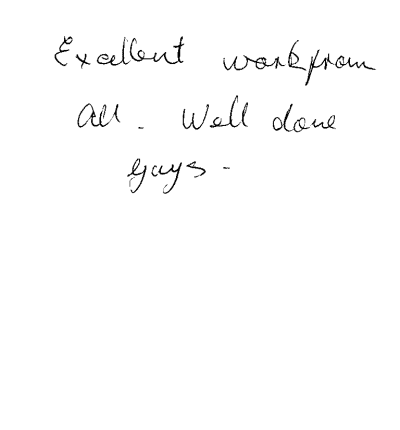 Excellent work from
All. Well done
guys.